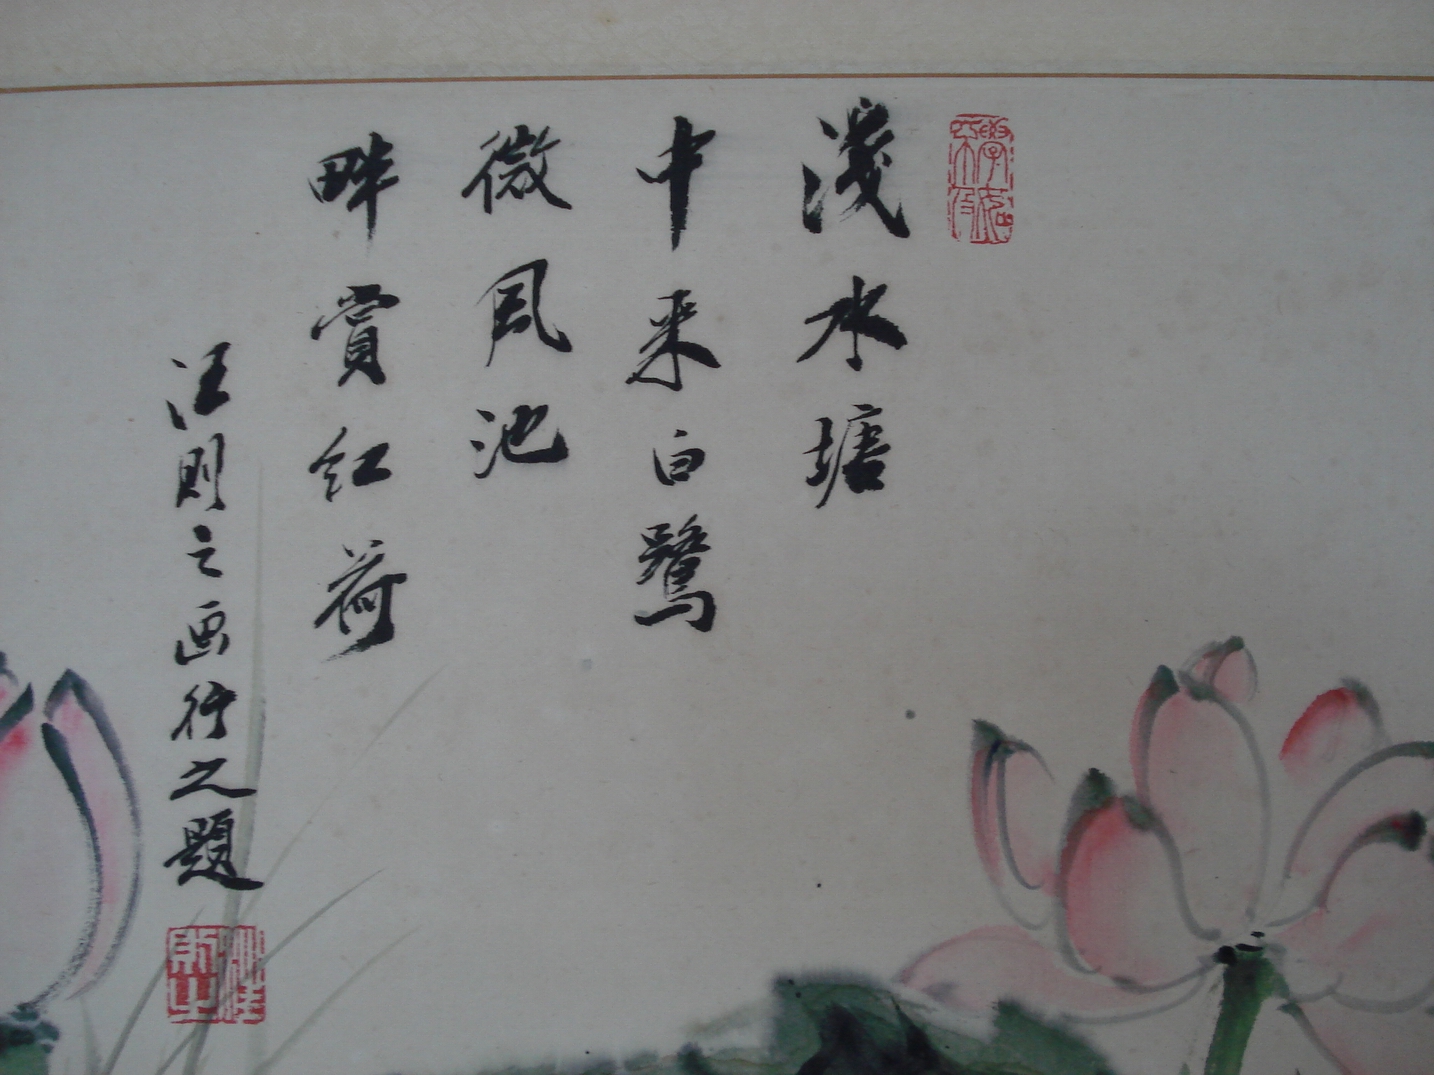 淺水塘
中来白鷺
微風池
畔賞红荷
汪則之画行之題